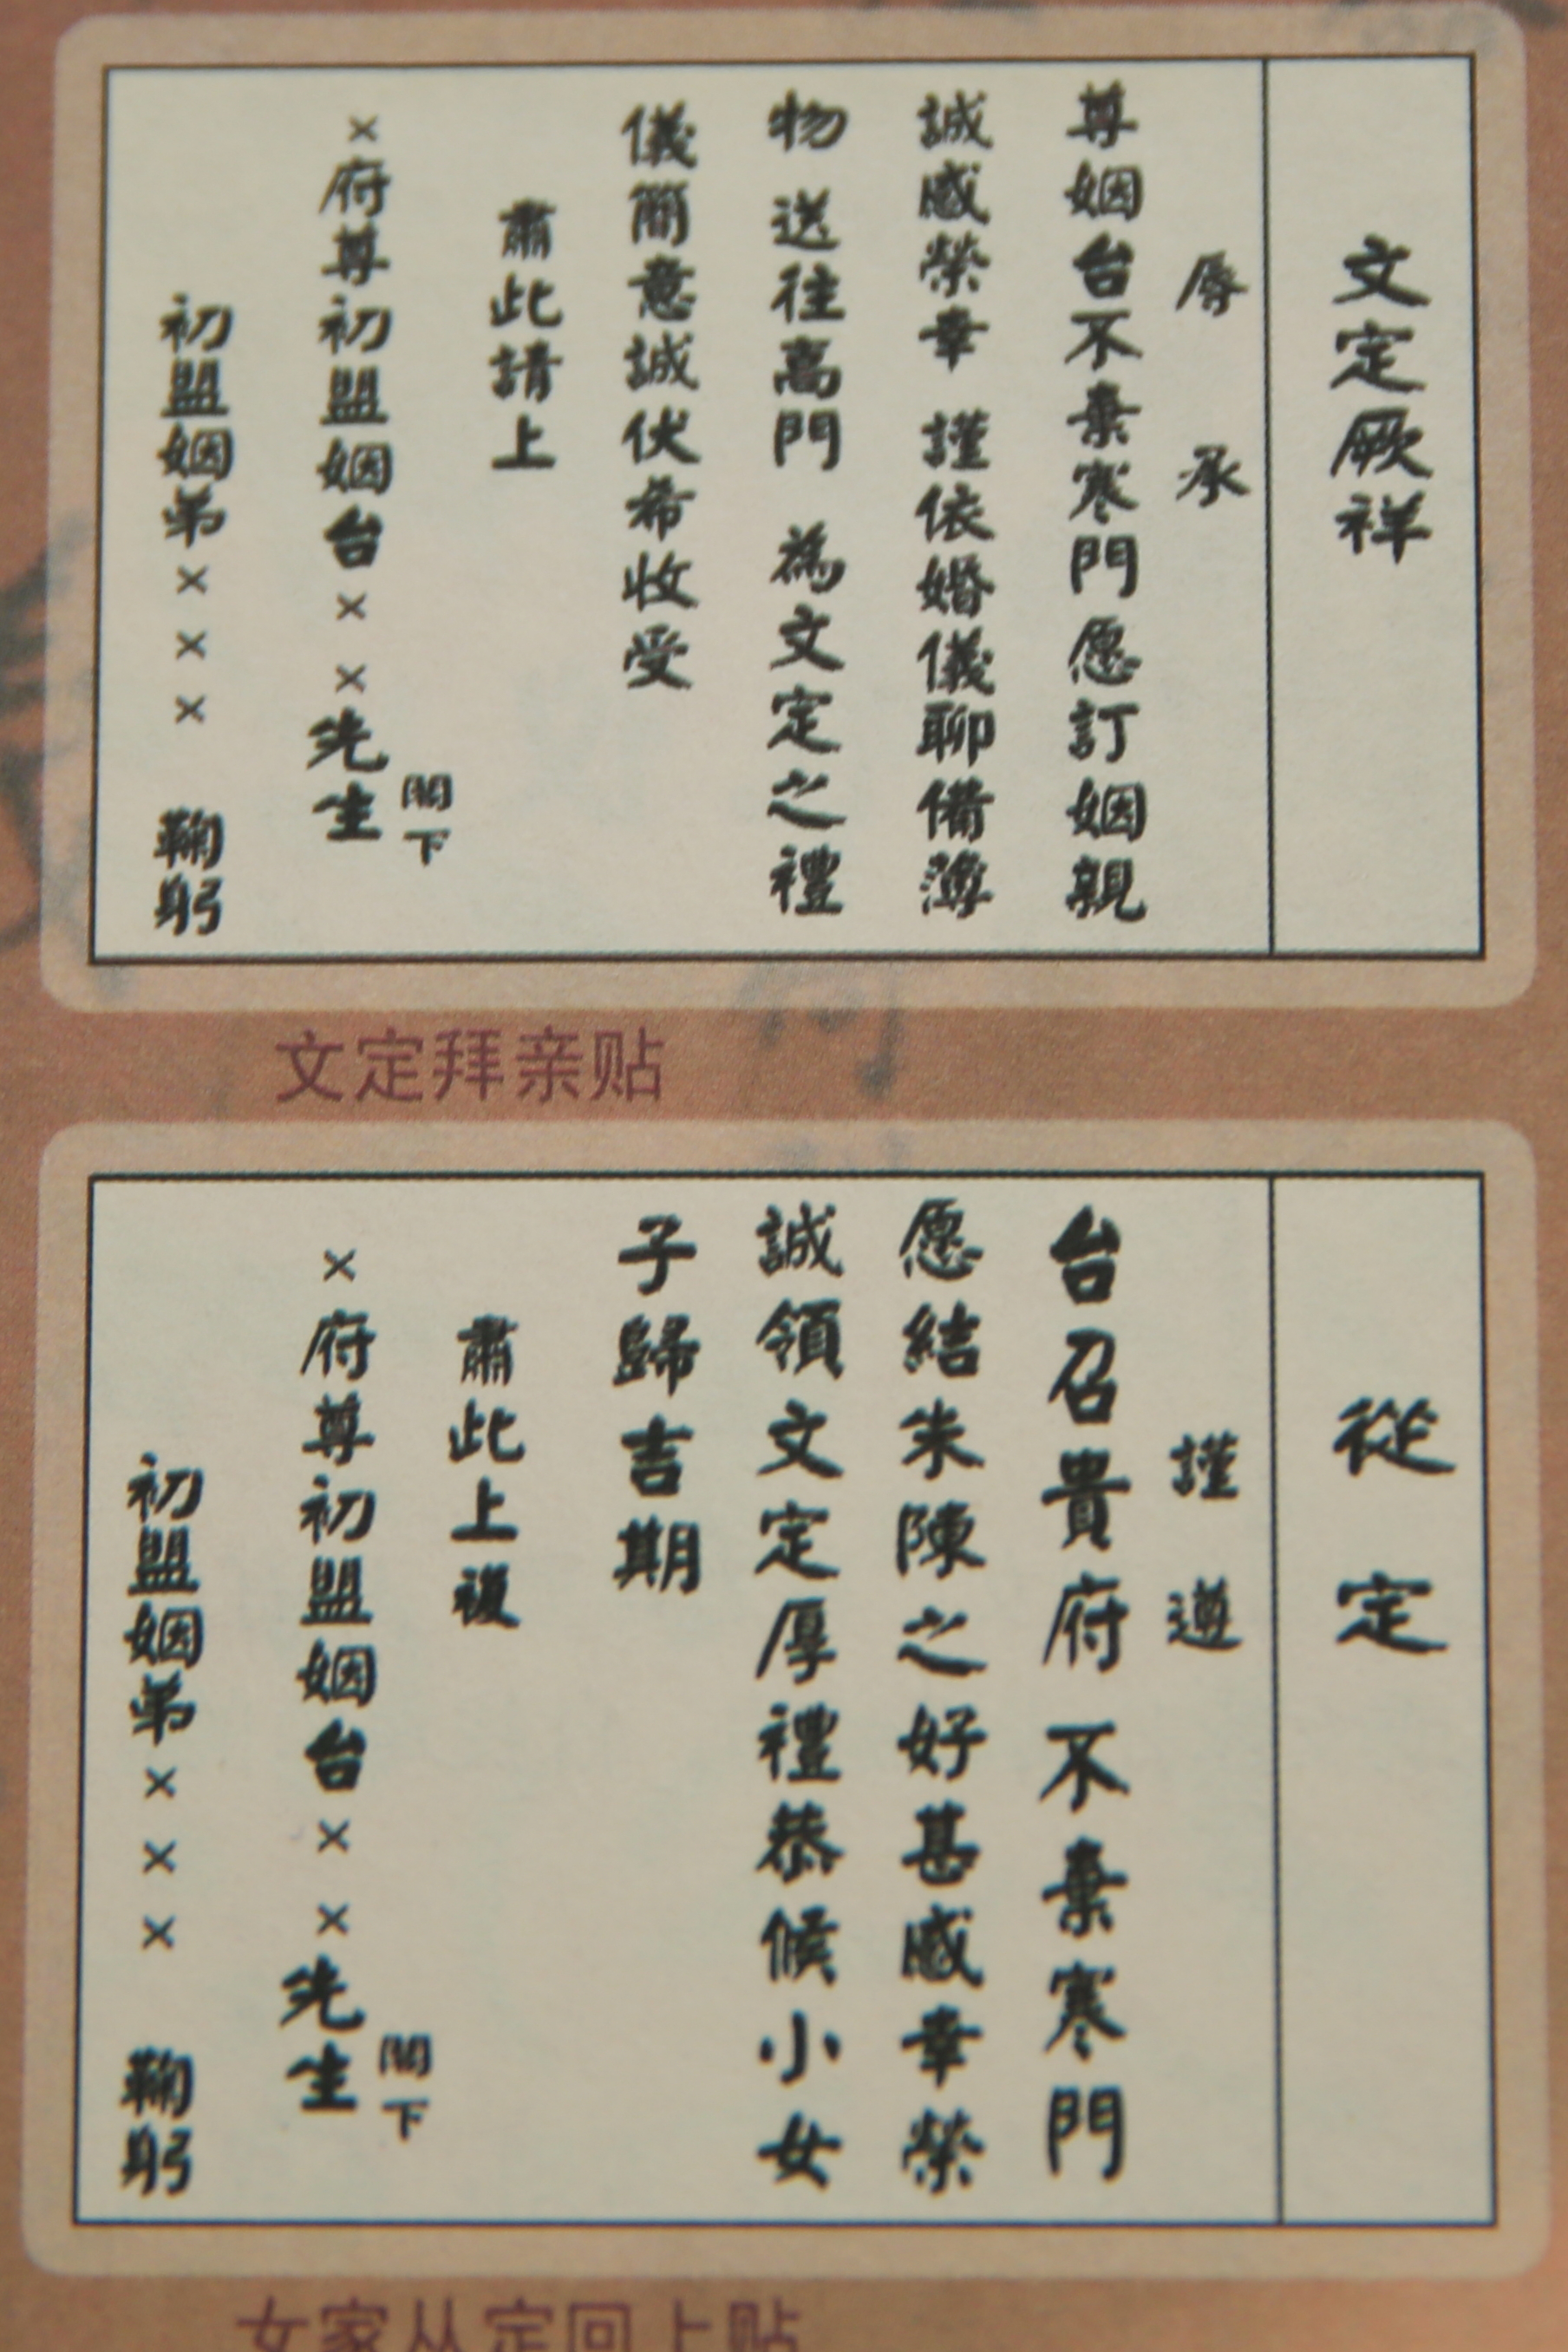 文定厥祥
辱承
尊姻台不棄寒門愿訂姻親
誠感榮幸 謹依婚儀聊備薄
物 送往高門 為文定之禮
儀簡意誠伏希收受
肅此請上
×府尊初盟姻台××先生
閣下
初盟姻弟××× 鞠躬
文定拜亲贴
從定
謹遵
台召貴府不棄寒門
愿結朱陳之好甚感幸榮
誠領文定厚禮恭候小女
子歸吉期
肅此上複
×府尊初盟姻台××先生
閣下
初盟姻弟××× 鞠躬
女家从定回上贴